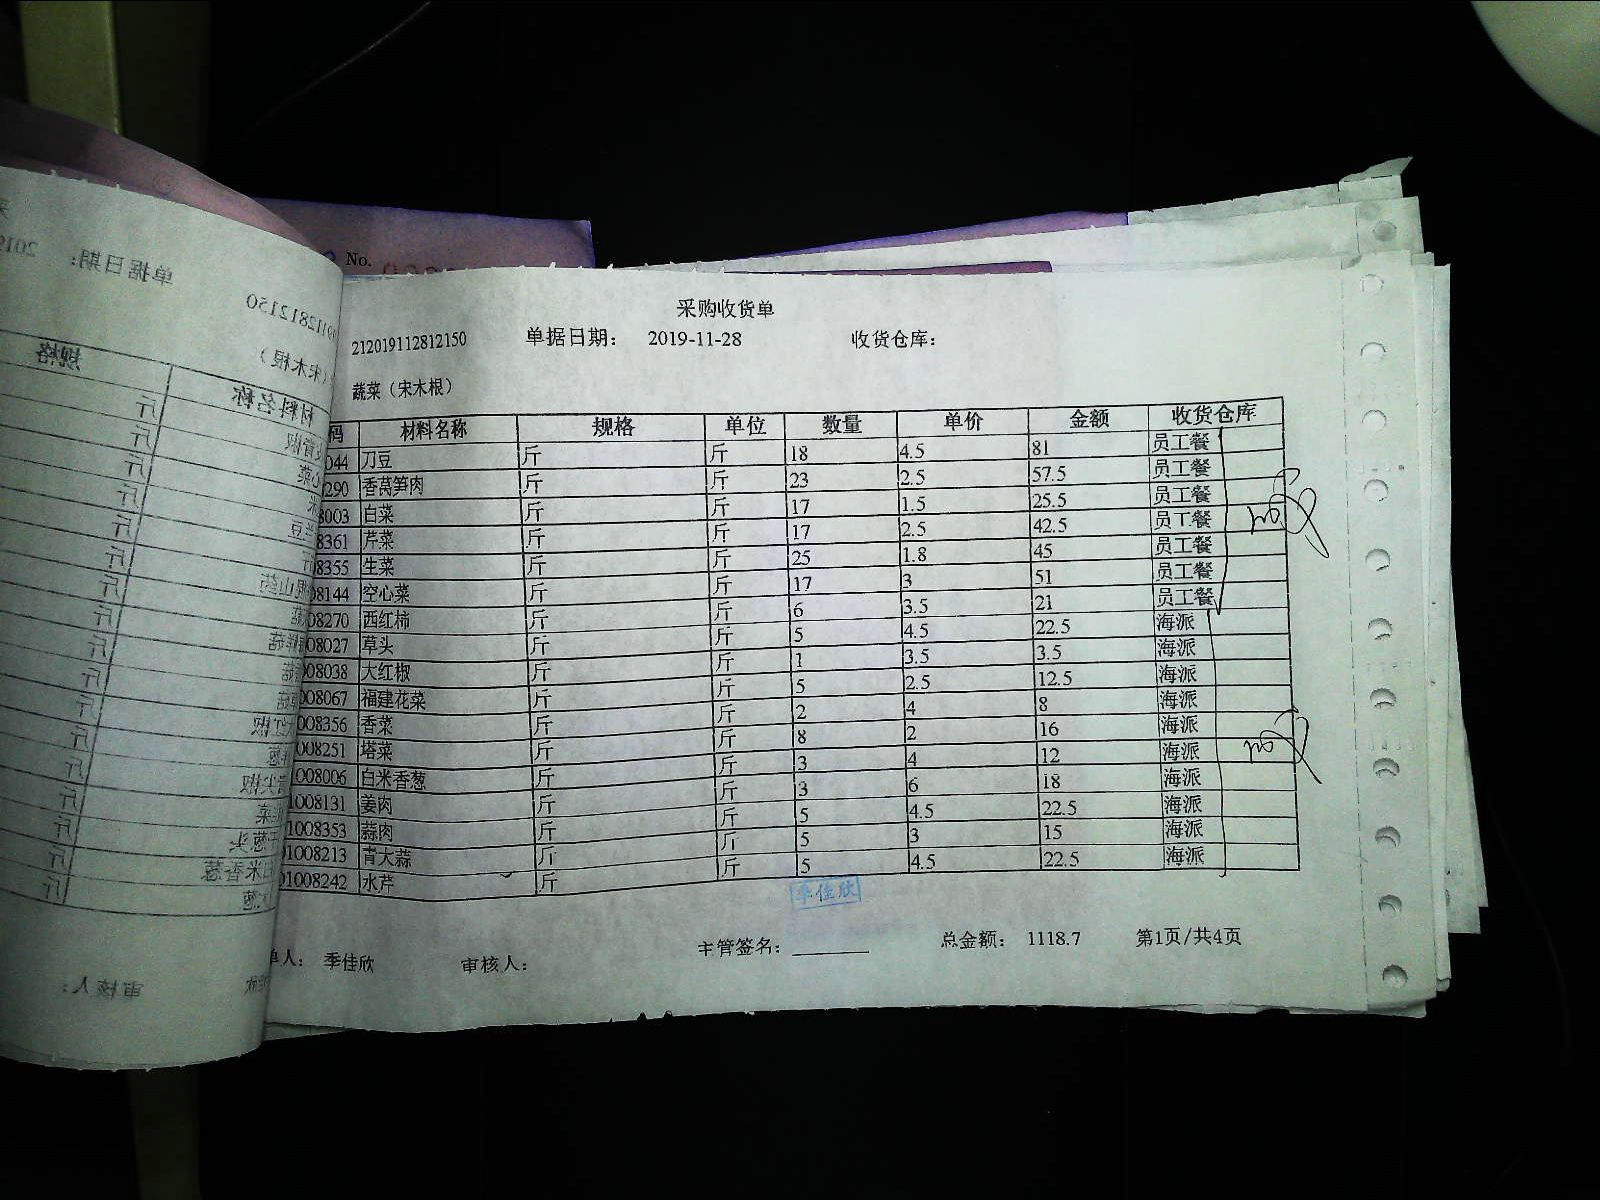 No.
采购收货单
212019112812150 单据日期： 2019-11-28 收货仓库：
蔬菜（宋木根）
码 材料名称 规格 单位 数量 单价 金额 收货仓库
044 刀豆 斤 斤 18 4.5 81 员工餐
290 香莴笋肉 斤 斤 23 2.5 57.5 员工餐
8003 白菜 斤 斤 17 1.5 25.5 员工餐
8361 芹菜 斤 斤 17 2.5 42.5 员工餐
8355 生菜 斤 斤 25 1.8 45 员工餐
08144 空心菜 斤 斤 17 3 51 员工餐
08270 西红柿 斤 斤 6 3.5 21 员工餐
008027 草头 斤 斤 5 4.5 22.5 海派
008038 大红椒 斤 斤 1 3.5 3.5 海派
008067 福建花菜 斤 斤 5 2.5 12.5 海派
008356 香菜 斤 斤 2 4 8 海派
008251 塔菜 斤 斤 8 2 16 海派
1008006 白米香葱 斤 斤 3 4 12 海派
1008131 姜肉 斤 斤 3 6 18 海派
1008353 蒜肉 斤 斤 5 4.5 22.5 海派
01008213 青大蒜 斤 斤 5 3 15 海派
01008242 水芹 斤 斤 5 4.5 22.5 海派
季佳欣
单人： 季佳欣 审核人： 主管签名： 总金额： 1118.7 第1页/共4页